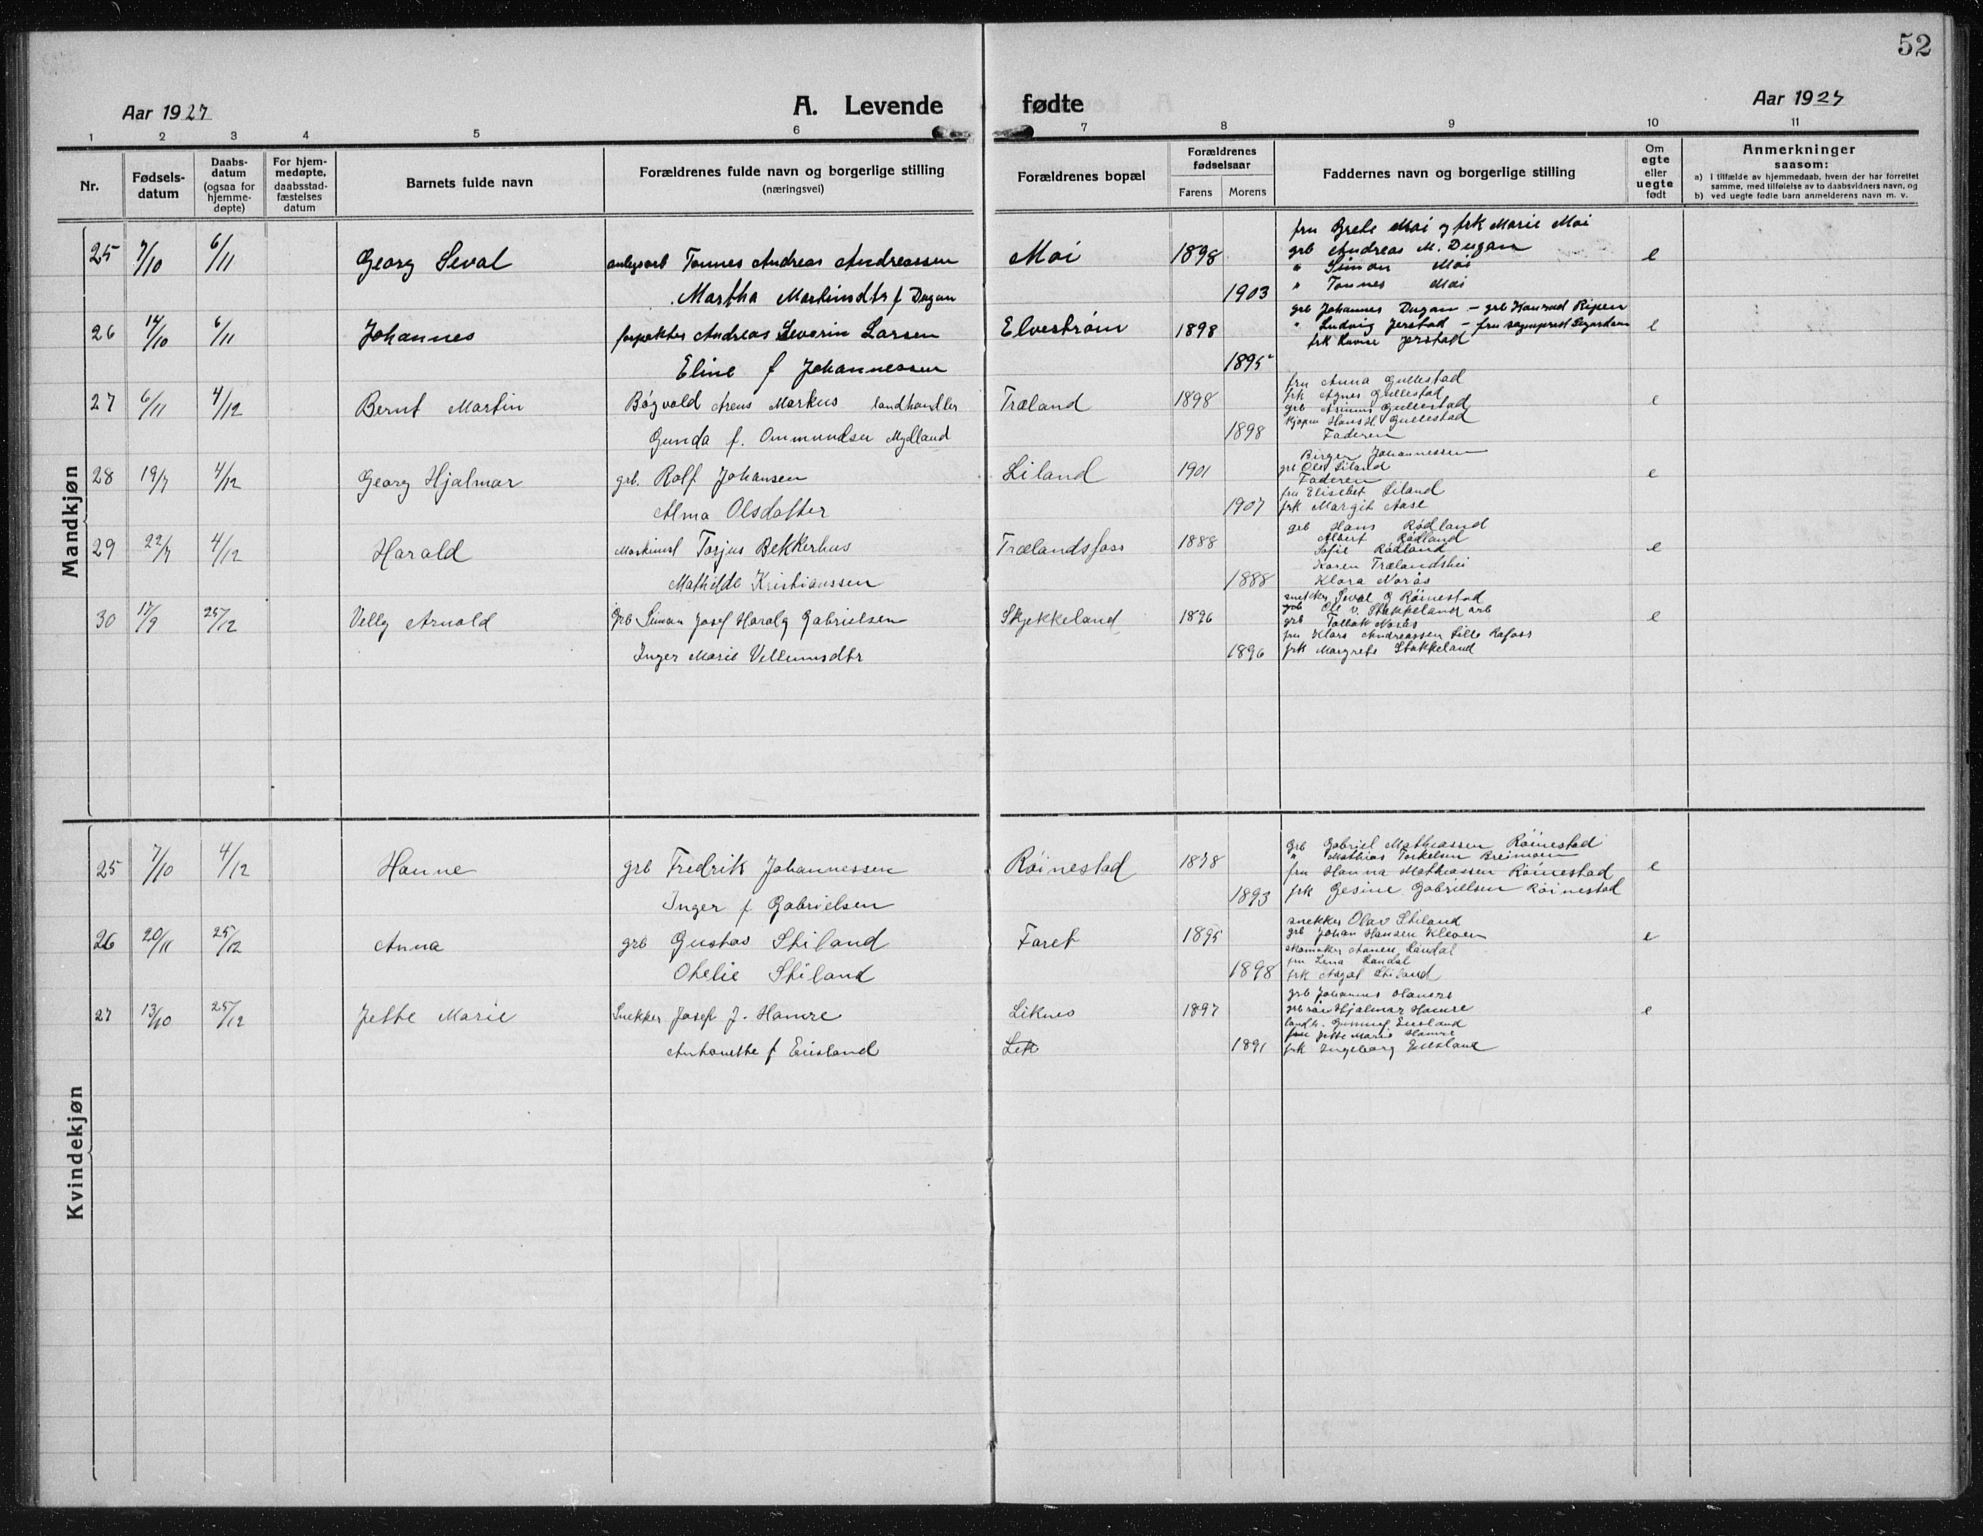 52
Aar 1927 A. Levende fødte Aar 1927
1 2 3 4 5 6 7 8 9 10 11
Nr. Fødselsdatum Daabsdatum (ogsaa for hjemmedøpte) For hjemmedøpte, daabsstadfæstelses datum Barnets fulde navn Forældrenes fulde navn og borgerlige stilling (næringsvei) Forældrenes bopæl Forældrenes fødselsaar Farens Morens Faddernes navn og borgerlige stilling Om egte eller uegte født Anmerkninger saasom:
a) I tilfælde av hjemmedaab, hvem der har forrettet samme, med tilføielse av to daabsvidners navn, og
b) ved uegte fødte barn anmelderens navn m. v.
Mandkjøn
fru Grete Moi og frk Marie Moi
25 7/10 6/11 Georg Seval Tonnes Andreas Andreassen Moi 1898 grb Andreas M. Dugan e
" Simon Moi
Martha Markusdtr f Dugan 1903 " Tonnes Moi
grb Johannes Dugan – grb Konrad Ripen
26 14/10 6/11 Johannes forpakter Andreas Severin Larsen Elvestrøm 1898 " Ludvig Jerstad – fru e
frk Jerstad
Eline f Johannessen 1895
fru Anna Gullestad
27 6/11 4/12 Bernt Martin Bøgvald Arens Markus landhandler Træland 1898 frk Agnes Gullestad e
grb Gullestad
Hans H. Gullestad
Gunda f. Ommundsen Mydland 1898 Faderen
Birger Johannessen
28 19/7 4/12 Georg Hjalmar grb. Rolf Johansen Liland 1901 grb Ole Liland e
Faderen
fru Elisebet Liland
Alma Olsdatter 1907 frk Margit Aase
grb Hans Rødland
29 22/7 4/12 Harald Maskinist Torjus Bekkerhus Trælandsfoss 1888 Albert Rødland e
Sofie Rødland
Karen Trælandshei
Mathilde Kristianssen 1888 Klara Norås
snekker Seval G Röinestad
30 17/9 25/12 Velly Arnold Grb Simon Josef Harald Gabrielsen Skjekkeland 1896 grb Ole V. Stakkeland arb e
grb Tallak Norås
fru Klara Andreassen Lille Rafoss
Inger Marie Velleumsdtr 1896 frk Margrete Stakkeland
Kvindekjøn
grb Gabriel Mathiassen Röinestad
25 7/10 4/12 Hanne grb Fredrik Johannessen Röinestad 1898 " Mathias Torkelsen Breimoen e
fru Hanna Mathiassen Röinestad
Inger f Gabrielsen 1893 frk Gesine Gabrielsen Röinestad
snekker Olav Stiland
26 20/11 25/12 Anna grb Gustav Stiland Faret 1895 grb Johan Hansen Kleven e
skomaker Aanen Landal
fru Lina Landal
Otelie Stiland 1898 frk Stiland
grb Johannes
27 13/10 25/12 Jette Marie Snekker Josef J. Hamre Liknes 1897 Hjalmar Hamre e
landh. Eiesland
fru Jette Marie Hamre
Antonette f Eiesland Lik 1891 frk Ingeborg Eiesland